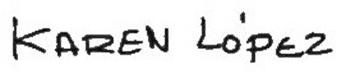 KAREN LÓPEZ